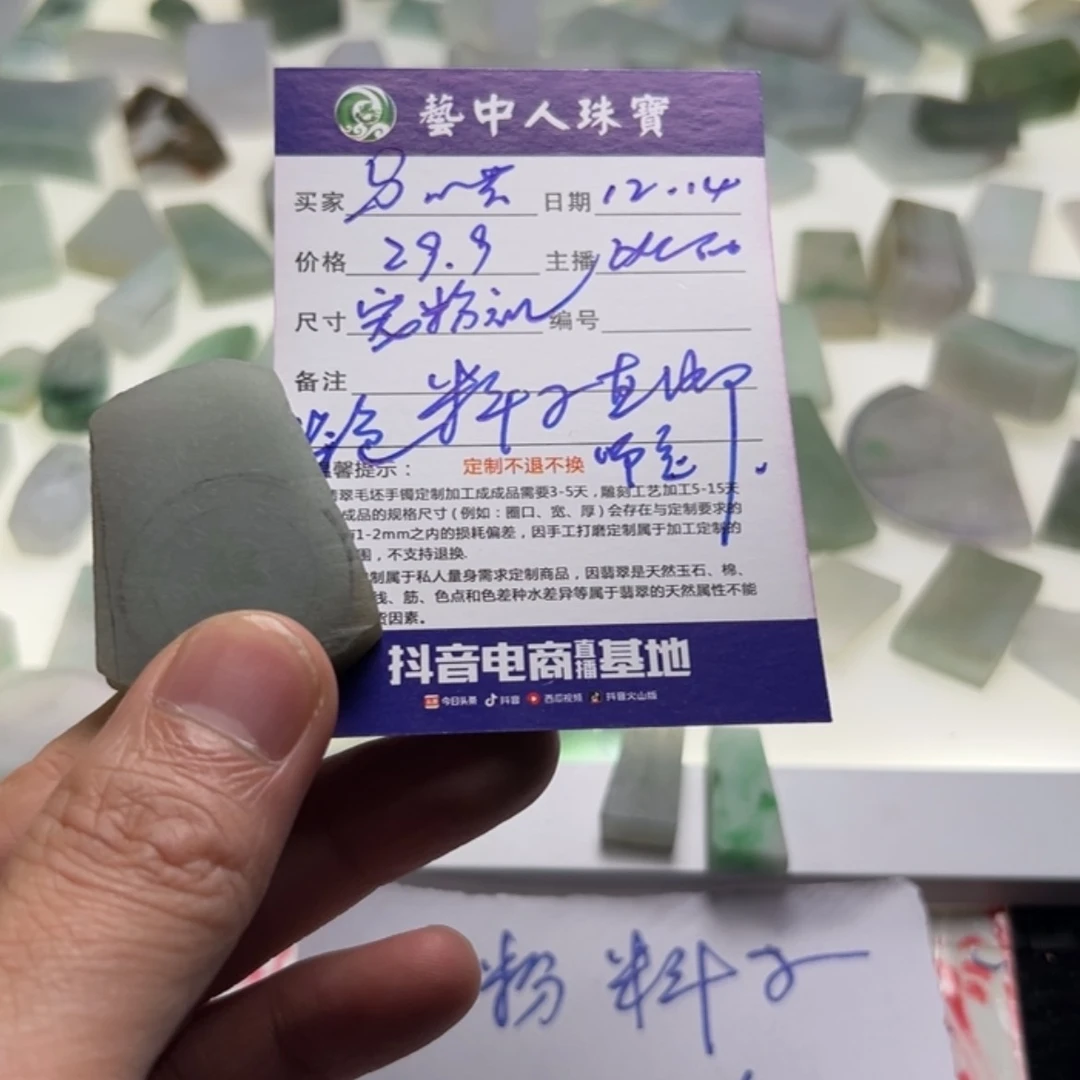 藝中人珠寶
买家 日期 12.14
价格 29.9 主播
尺寸 宠粉 编号
备注
料子直
馨提示： 定制不退不换
翡翠毛坯手镯定制加工成成品需要3-5天，雕刻工艺加工5-15天
成品的规格尺寸(例如：圈口、宽、厚)会存在与定制要求的
1-2mm之内的损耗偏差，因手工打磨定制属于加工定制的
围，不支持退换.
制属于私人量身需求定制商品，因翡翠是天然玉石、棉、
筋、色点和色差种水差异等属于翡翠的天然属性不能
货因素。
抖音电商直播基地
今日头条 抖音 西瓜视频 抖音火山版
粉料子